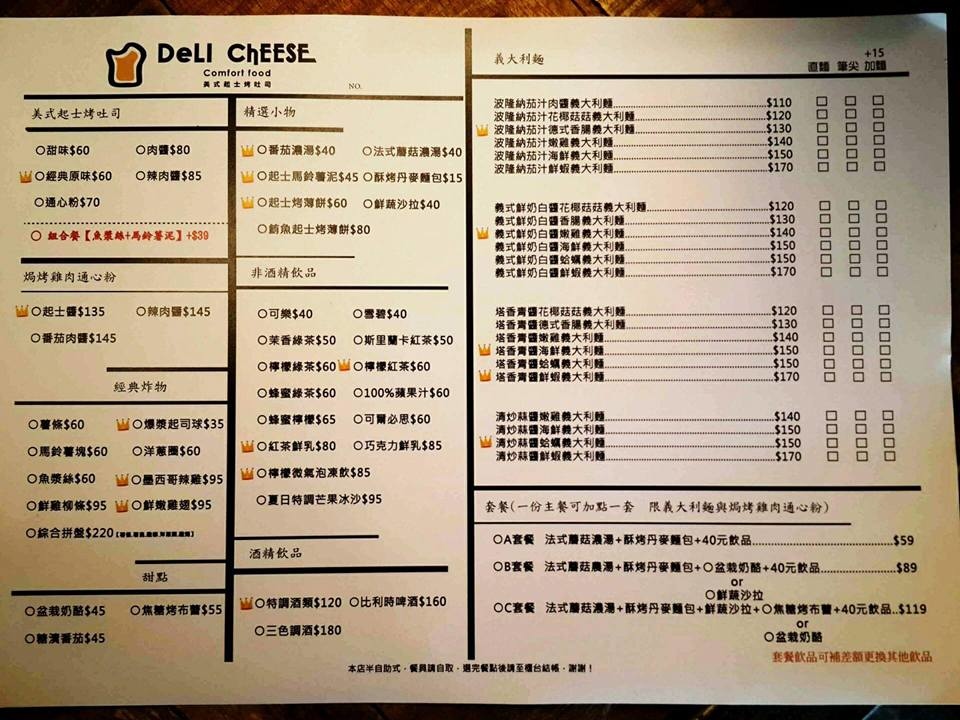 DELI CHEESE
Comfort food
美式起士烤吐司
NO.
美式起士烤吐司
○甜味$60 ○肉醬$80
○經典原味$60 ○辣肉醬$85
○通心粉$70
○ 組合餐【魚漿絲+馬鈴薯泥】+$39
焗烤雞肉通心粉
○起士醬$135 ○辣肉醬$145
○番茄肉醬$145
經典炸物
○薯條$60 ○爆漿起司球$35
○馬鈴薯塊$60 ○洋蔥圈$60
○魚漿絲$60 ○墨西哥辣雞$95
○鮮雞柳條$95 ○鮮嫩雞翅$95
○綜合拼盤$220
甜點
○盆栽奶酪$45 ○焦糖烤布蕾$55
○糖漬番茄$45
精選小物
○番茄濃湯$40 ○法式蘑菇濃湯$40
○起士馬鈴薯泥$45 ○酥烤丹麥麵包$15
○起士烤薄餅$60 ○鮮蔬沙拉$40
○鮪魚起士烤薄餅$80
非酒精飲品
○可樂$40 ○雪碧$40
○茉香綠茶$50 ○斯里蘭卡紅茶$50
○檸檬綠茶$60 ○檸檬紅茶$60
○蜂蜜綠茶$60 ○100%蘋果汁$60
○蜂蜜檸檬$65 ○可爾必思$60
○紅茶鮮乳$80 ○巧克力鮮乳$85
○檸檬微氣泡凍飲$85
○夏日特調芒果冰沙$95
酒精飲品
○特調酒類$120 ○比利時啤酒$160
○三色調酒$180
義大利麵
+15
直麵 筆尖 加麵
波隆納茄汁肉醬義大利麵 $110 □ □ □
波隆納茄汁花椰菇菇義大利麵 $120 □ □ □
波隆納茄汁德式香腸義大利麵 $130 □ □ □
波隆納茄汁嫩雞義大利麵 $140 □ □ □
波隆納茄汁海鮮義大利麵 $150 □ □ □
波隆納茄汁鮮蝦義大利麵 $170 □ □ □
義式鮮奶白醬花椰菇菇義大利麵 $120 □ □ □
義式鮮奶白醬香腸義大利麵 $130 □ □ □
義式鮮奶白醬嫩雞義大利麵 $140 □ □ □
義式鮮奶白醬海鮮義大利麵 $150 □ □ □
義式鮮奶白醬蛤蠣義大利麵 $150 □ □ □
義式鮮奶白醬鮮蝦義大利麵 $170 □ □ □
塔香青醬花椰菇菇義大利麵 $120 □ □ □
塔香青醬德式香腸義大利麵 $130 □ □ □
塔香青醬嫩雞義大利麵 $140 □ □ □
塔香青醬海鮮義大利麵 $150 □ □ □
塔香青醬蛤蠣義大利麵 $150 □ □ □
塔香青醬鮮蝦義大利麵 $170 □ □ □
清炒蒜醬嫩雞義大利麵 $140 □ □ □
清炒蒜醬海鮮義大利麵 $150 □ □ □
清炒蒜醬蛤蠣義大利麵 $150 □ □ □
清炒蒜醬鮮蝦義大利麵 $170 □ □ □
套餐(一份主餐可加點一套 限義大利麵與焗烤雞肉通心粉)
○A套餐 法式蘑菇濃湯+酥烤丹麥麵包+40元飲品 $59
○B套餐 法式蘑菇農湯+酥烤丹麥麵包+○盆栽奶酪+40元飲品 $89
or
○鮮蔬沙拉
○C套餐 法式蘑菇濃湯+酥烤丹麥麵包+鮮蔬沙拉+○焦糖烤布蕾+40元飲品..$119
or
○盆栽奶酪
套餐飲品可補差額更換其他飲品
本店半自助式，餐具請自取，選完餐點後請至櫃台結帳，謝謝！